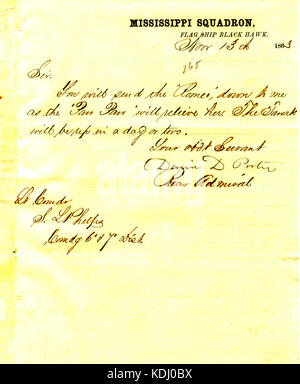 MISSISSIPPI SQUADRON,
FLAG SHIP BLACK HAWK.
Nov 13th 1863
265
Sir.
You will send the "Romeo" down to me
as the "Paw Paw" will relieve her The
will be up in a day or two.
Your obdt Servant
David D Porter
Rear Admiral
Lt Comdr
S. L Phelps
Comdg 6th & 7th Dist
alamy
KDJ0BX